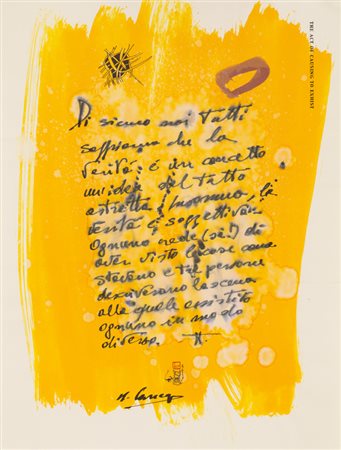 THE ACT OF CAUSING TO EXHIST
Di sicuro noi tutti
sappiamo che la
verità è un concetto
un'idea del tutto
astratta /
verità è soggettiva
Ognuno crede (sì!) di
aver visto le cose come
stavano e tre persone
descriveranno la scena
alla quale assistito
ognuno in modo
diverso.